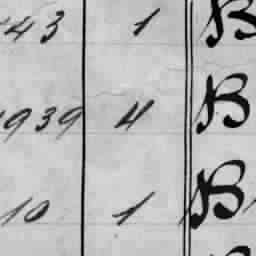 43 1 B
939 4 B
10 1 B